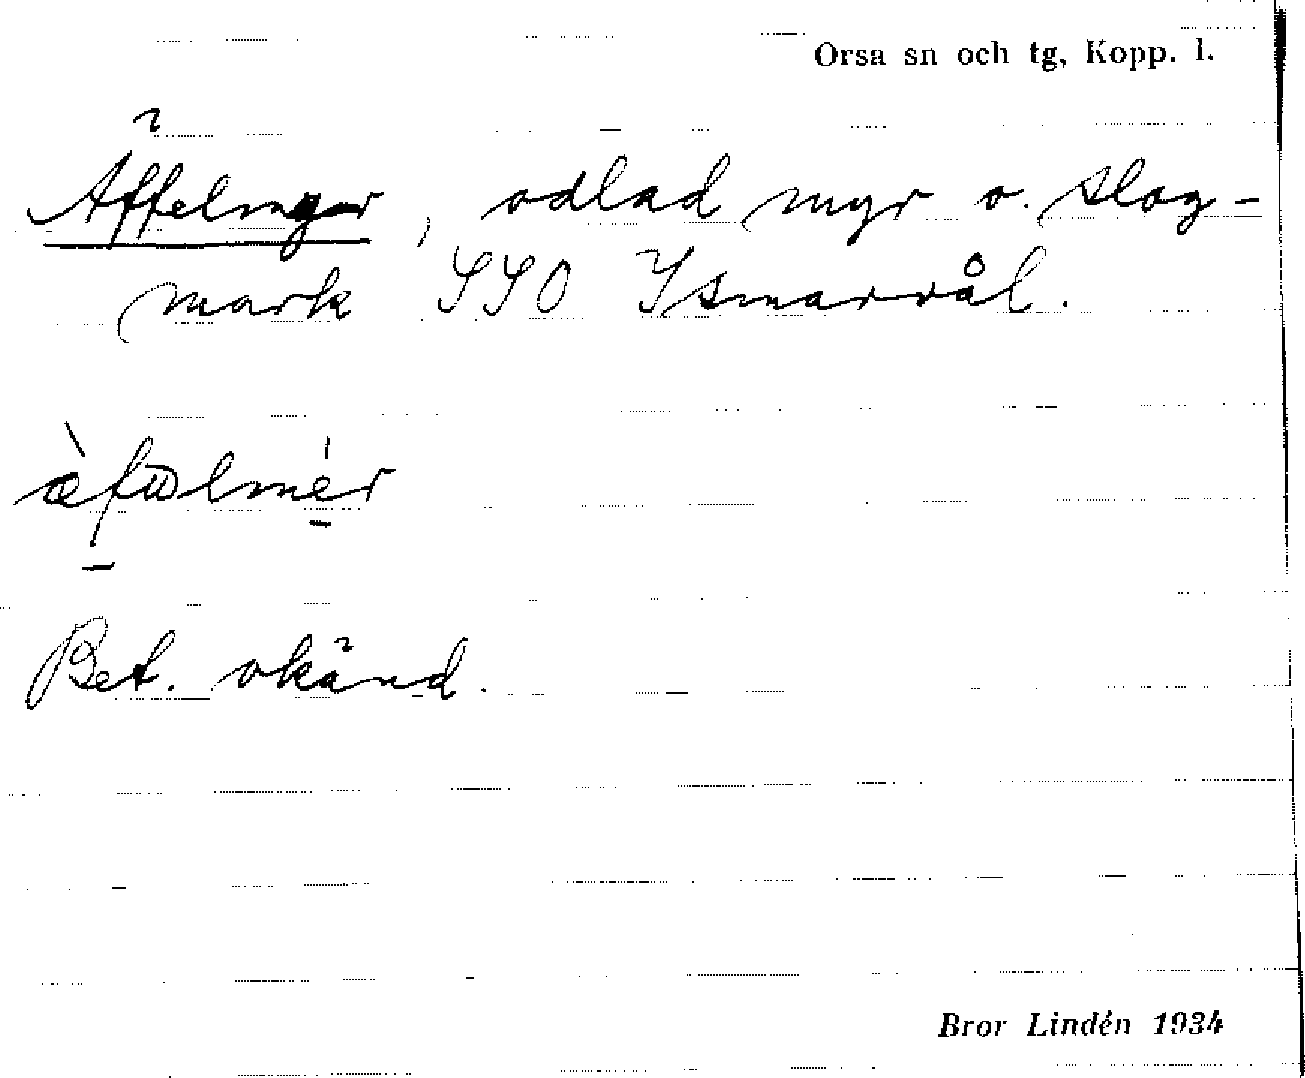 Orsa sn och tg, Kopp. l.
Äffelmyr, odlad myr o. slog-
mark SSO Ismarvål.
Bet. okänd.
Bror Lindén 1934